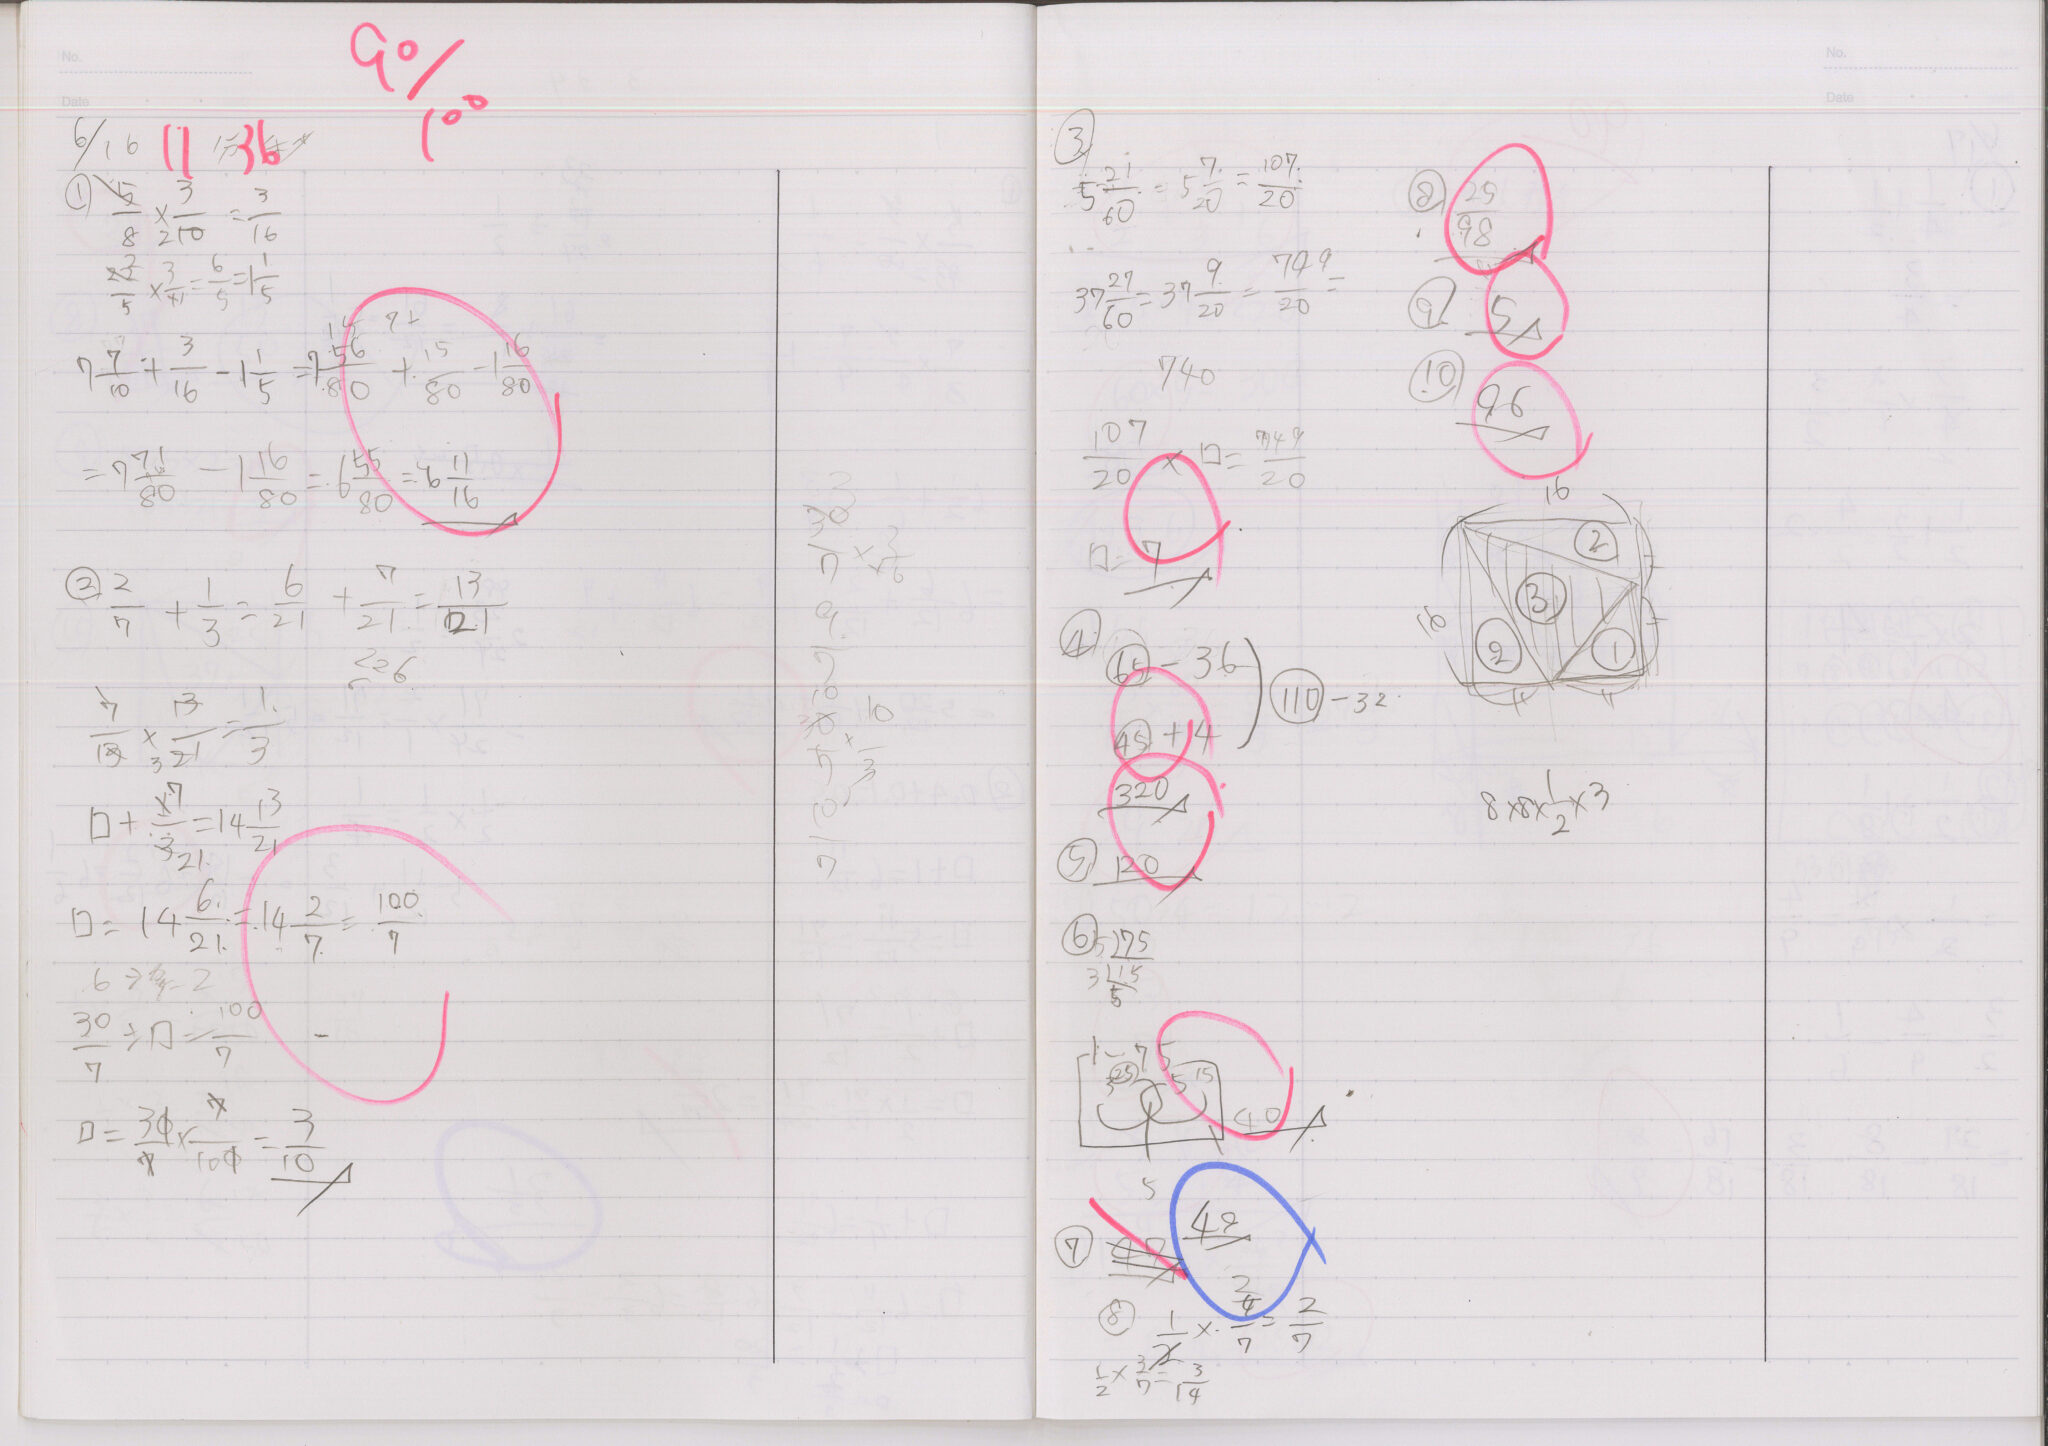 No.
Date
90/100
6/16 11分36
① 5/8 × 3/10 = 3/16
22/5 × 3/11 = 6/5 = 1 1/5
7 7/10 + 3/16 - 1 1/5 = 7 56/80 + 15/80 - 1 16/80
= 7 71/80 - 1 16/80 = 6 55/80 = 6 11/16
② 2/7 + 1/3 = 6/21 + 7/21 = 13/21
226
7/13 × 13/21 = 1/3
□ + 7/21 = 14 13/21
□ = 14 6/21 = 14 2/7 = 100/7
30/7 ÷ □ = 100/7
□ = 30/7 × 7/100 = 3/10
No.
Date
③
5 21/60 = 5 7/20 = 107/20
37 27/60 = 37 9/20 = 749/20 =
740
107/20 × □ = 749/20
□ = 7
④
65 - 36
45 + 4
110 - 32
320
⑤ 120
⑥ 5)75
3)15
5
1~75
3 25 5 15
40
5
⑦ 48
⑧ 1/2 × 4/7 = 2/7
1/2 × 3/7 = 3/14
⑧ 25/98
⑨ 5
⑩ 96
16
②
③
16
② ①
8×8×1/2×3